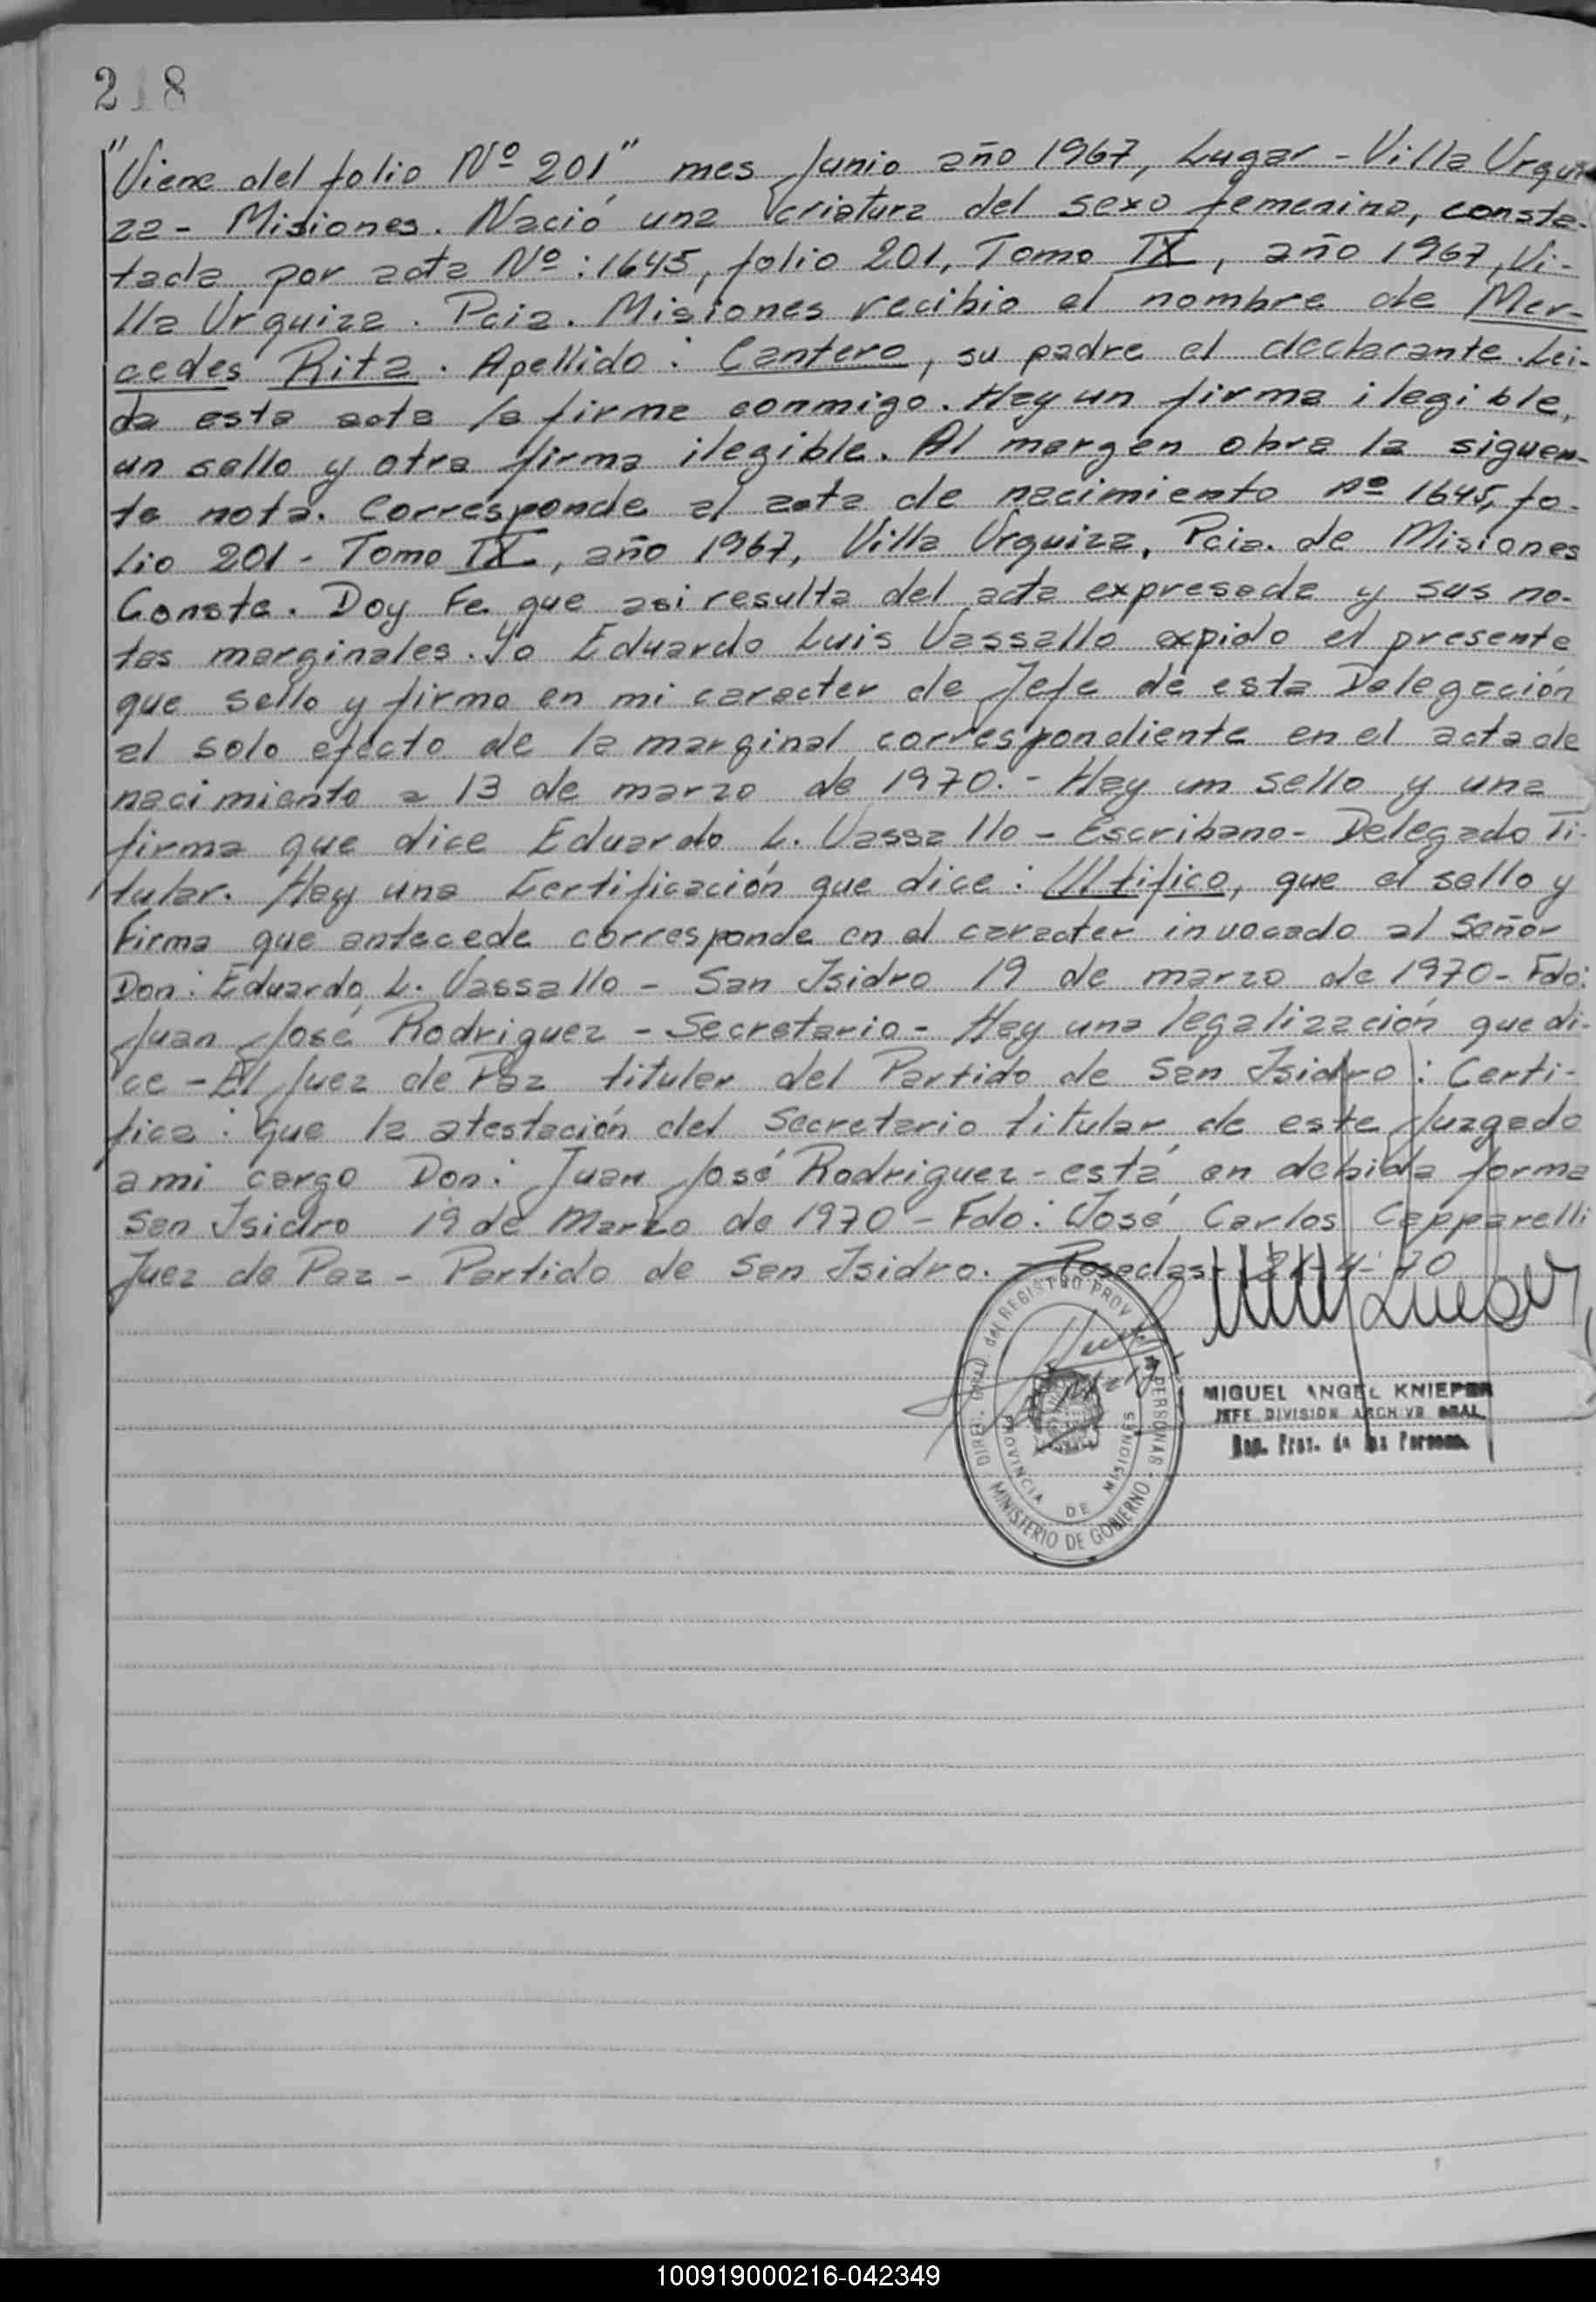 218
"Viene del folio Nº 201" mes Junio año 1967, Lugar - Villa Urqui
za - Misiones. Nació una criatura del sexo femenino, consta-
tada por acta Nº: 1645, folio 201, Tomo IX, año 1967, Vi-
lla Urquiza. Pcia. Misiones recibio el nombre de Mer-
cedes Rita. Apellido: Cantero, su padre el declarante. Lei-
da esta acta la firma conmigo. Hay un firma ilegible,
un sello y otra firma ilegible. Al margen obra la siguen-
te nota. Corresponde al acta de nacimiento nº 1645, fo-
lio 201 - Tomo IX, año 1967, Villa Urquiza, Pcia. de Misiones
Conste. Doy Fe que asi resulta del acta expresada y sus no-
tas marginales. Yo Eduardo Luis Vassallo expido el presente
que sello y firmo en mi caracter de Jefe de esta Delegación
al solo efecto de la marginal correspondiente en el acta de
nacimiento a 13 de marzo de 1970. - Hay un sello y una
firma que dice Eduardo L. Vassallo - Escribano - Delegado Ti-
tular. Hay una Certificación que dice: que el sello y
Firma que antecede corresponde en el caracter invocado al Señor
Don: Eduardo L. Vassallo - San Isidro 19 de marzo de 1970 - Fdo:
Juan José Rodriguez - Secretario - Hay una legalización que di-
ce - El Juez de Paz titular del Partido de San Isidro: Certi-
fica: que la atestación del Secretario titular de este Juzgado
a mi cargo Don: Juan José Rodriguez - está en debida forma
San Isidro 19 de Marzo de 1970 - Fdo: José Carlos Capparelli
Juez de Paz - Partido de San Isidro. - Posadas - 21-4-70
DIREC. GRAL. del REGISTRO PROV. de las PERSONAS
PROVINCIA DE MISIONES
MINISTERIO DE GOBIERNO
MIGUEL ANGEL KNIEPER
JEFE DIVISION ARCHIVO GRAL.
Reg. Prov. de las Personas
100919000216-042349